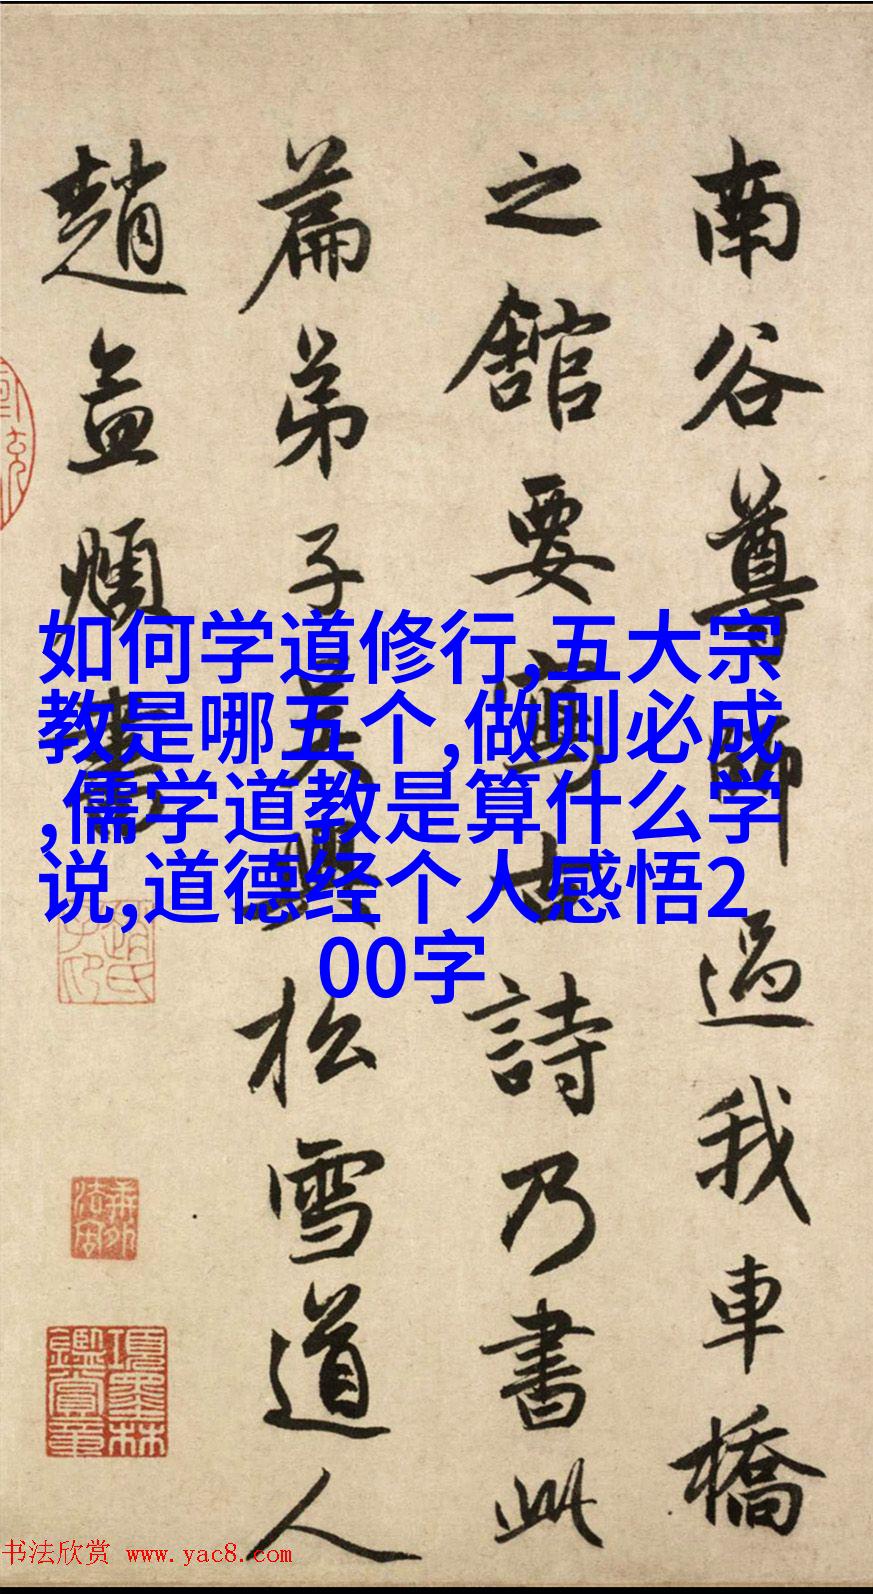 南谷尊師過我車橋
之館要寫古詩乃書此
篇弟子吳興松雪道人
趙孟頫書
如何学道修行,五大宗
教是哪五个,做则必成
,儒学道教是算什么学
说,道德经个人感悟2
00字
項墨林鑑賞章
书法欣赏 www.yac8.com